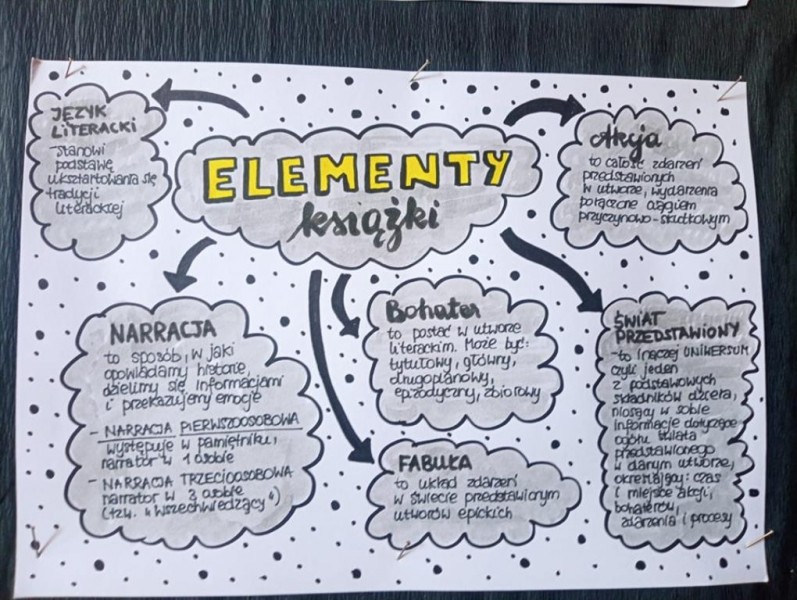 ELEMENTY
książki
JĘZYK
LITERACKI
-stanowi
podstawę
ukształtowania się
tradycji
literackiej
Akcja
to całość zdarzeń
przedstawionych
w utworze, wydarzenia
połączone ciągiem
przyczynowo-skutkowym
NARRACJA
to sposób, w jaki
opowiadamy historie,
dzielimy się informacjami
i przekazujemy emocje
- NARRACJA PIERWSZOOSOBOWA
występuje w pamiętniku,
narrator w 1 osobie
- NARRACJA TRZECIOOSOBOWA
narrator w 3 osobie
(tzw. "wszechwiedzący")
Bohater
to postać w utworze
literackim. Może być:
tytułowy, główny,
drugoplanowy,
epizodyczny, zbiorowy
FABUŁA
to układ zdarzeń
w świecie przedstawionym
utworów epickich
ŚWIAT
PRZEDSTAWIONY
-to inaczej UNIWERSUM
czyli jeden
z podstawowych
składników dzieła,
niosący w sobie
informacje dotyczące
ogółu świata
przedstawionego
w danym utworze,
określający: czas
i miejsce akcji,
bohaterów,
zdarzenia i procesy